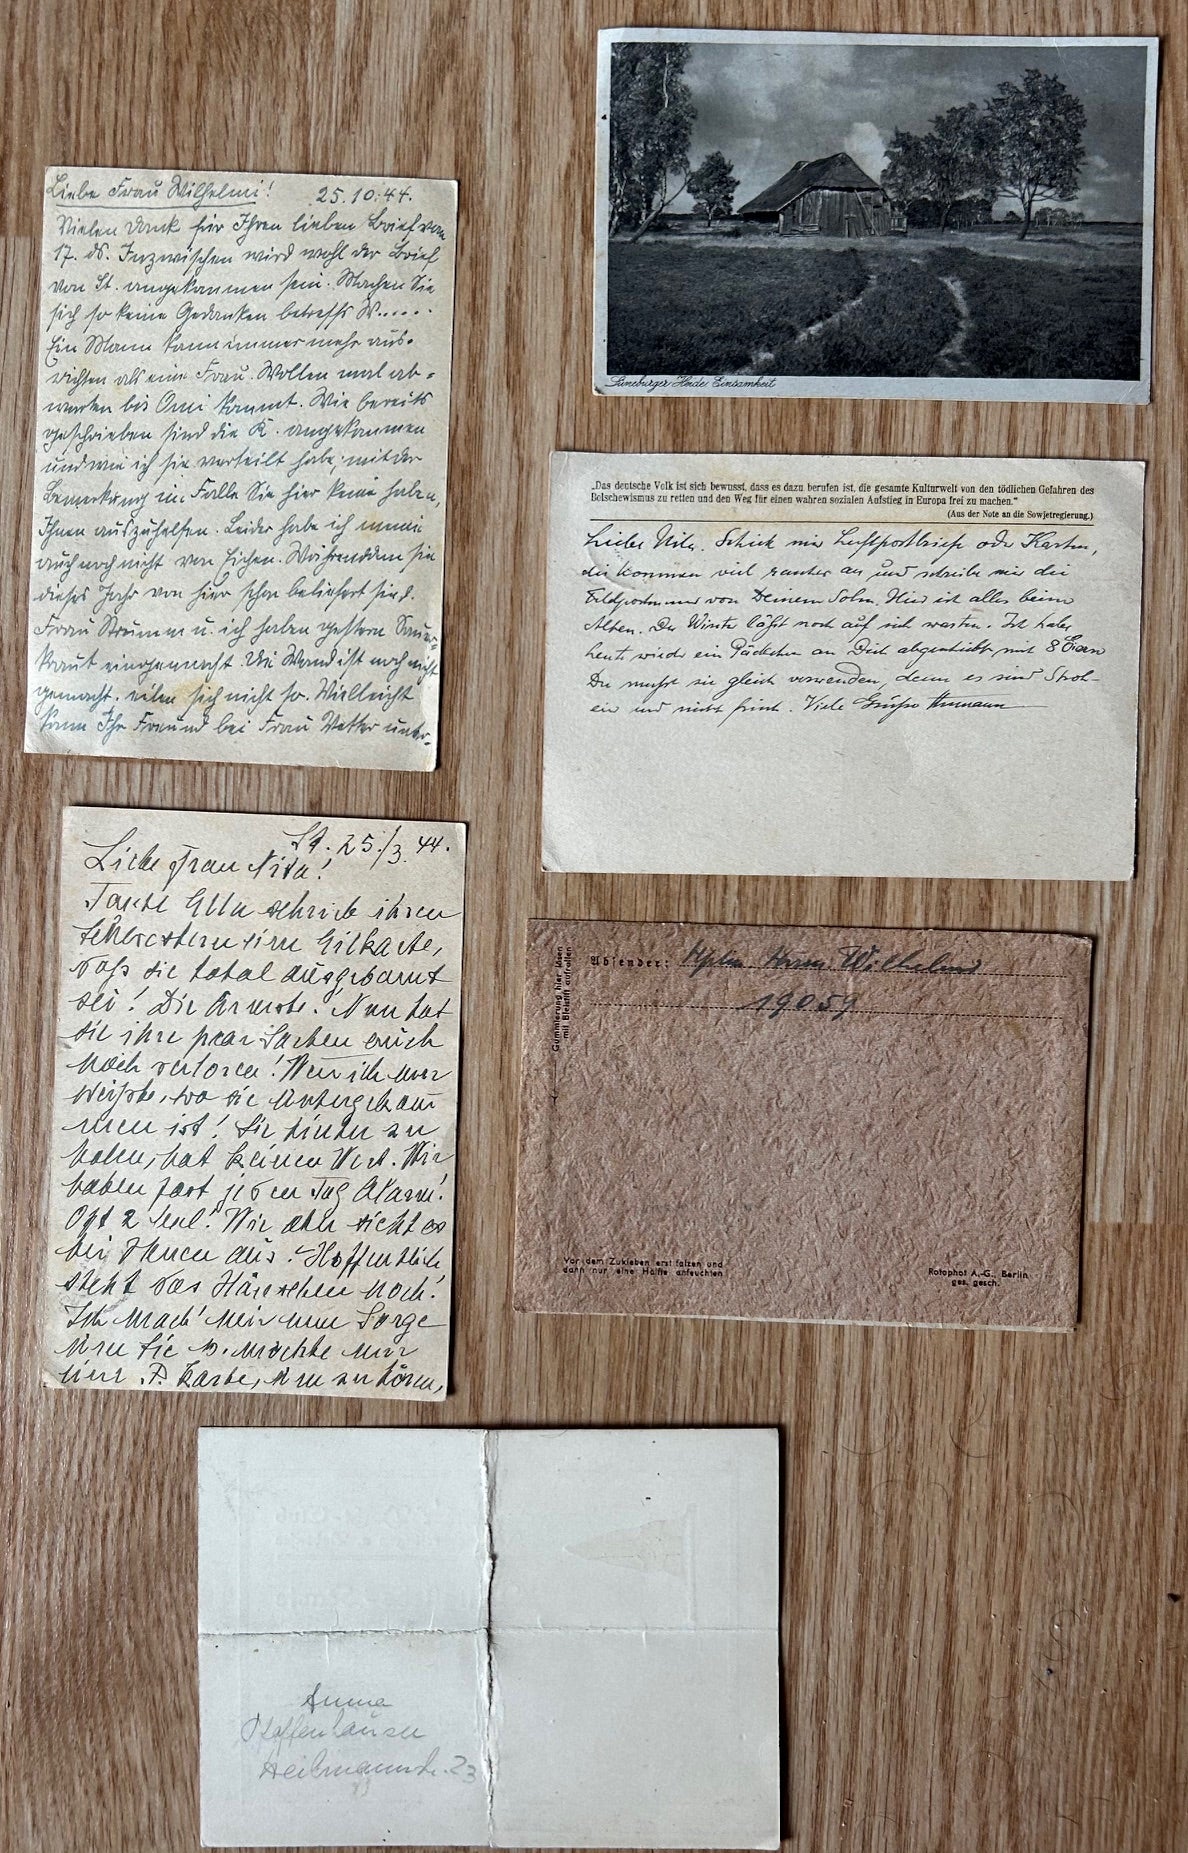 Liebe Frau Wilhelmi! 25.10.44.
Vielen Dank für Ihren lieben Brief vom
17. ds. Inzwischen wird wohl der Brief
von St. angekommen sein. Machen Sie
sich so keine Gedanken betreffs W......
Ein Mann kann immer mehr aus-
richten als eine Frau. Wollen mal ab-
warten bis Omi kommt. Wie bereits
geschrieben sind die K. angekommen
und wie ich sie verteilt habe mit der
Bemerkung im Falle Sie hier keine haben,
Ihnen auszuhelfen. Leider habe ich meine
auch noch nicht von Eichen. Währenddem sie
dieses Jahr von hier schon beliefert sind.
Frau Strumm u. ich haben gestern Sauer-
kraut eingemacht. Die Wand ist noch nicht
gemacht, eilen sich nicht so. Vielleicht
kann Ihr Freund bei Frau Vetter unter-
Lüneburger Heide Einsamkeit
„Das deutsche Volk ist sich bewusst, dass es dazu berufen ist, die gesamte Kulturwelt von den tödlichen Gefahren des
Bolschewismus zu retten und den Weg für einen wahren sozialen Aufstieg in Europa frei zu machen.“
(Aus der Note an die Sowjetregierung.)
Liebe Nita. Schick mir Luftpostbriefe oder Karten,
die kommen viel rascher an und schreibe mir die
Feldpostnummer von Deinem Sohn. Hier ist alles beim
Alten. Der Winter läßt noch auf sich warten. Ich habe
heute wieder ein Päckchen an Dich abgeschickt mit 8 Eiern
Du musst sie gleich verwenden, denn es sind
und nicht frisch. Viele Grüsse Hermann
St. 25./3. 44.
Liebe Frau Nita!
Tante Ella schrieb ihren
Schwestern eine Eilkarte,
daß sie total ausgebombt
sei! Die Ärmste! Nun hat
sie ihre paar Sachen auch
noch verloren! Wenn ich nur
wüßte, wo sie untergekom
men ist! Sie hinter zu
holen, hat keinen Wert. Wir
haben fast jeden Tag Alarm!
Oft 2 mal! Wie aber sieht es
bei Ihnen aus? Hoffentlich
steht das Häuschen noch!
Ich mach' mir nun Sorge
um Sie u. möchte nur
eine P. Karte, um zu hören,
Gummierung hier lösen
mit Bleistift aufrollen
Absender: Herm. Wilhelmi
19059
Vor dem Zukleben erst falzen und
dann nur eine Hälfte anfeuchten
Rotophot A.-G., Berlin
ges. gesch.
Anna
Pfaffenhausen
Heilmannstr. 23